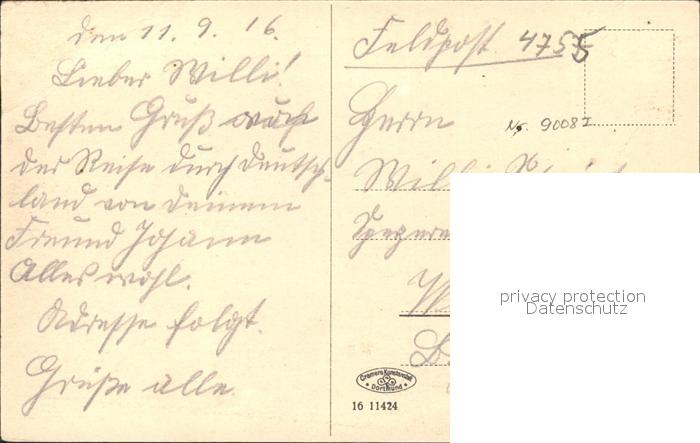 den 11. 9. 16.
Lieber Willi!
Besten Gruß nach
der Reise durch Deutsch-
land von deinem
Freund Johann
Alles wohl.
Adresse folgt.
Grüße alle.
Feldpost 4755
Nr. 9008 I
Herrn
Willi
Cramers Kunstanstalt
Dortmund
16 11424
privacy protection
Datenschutz